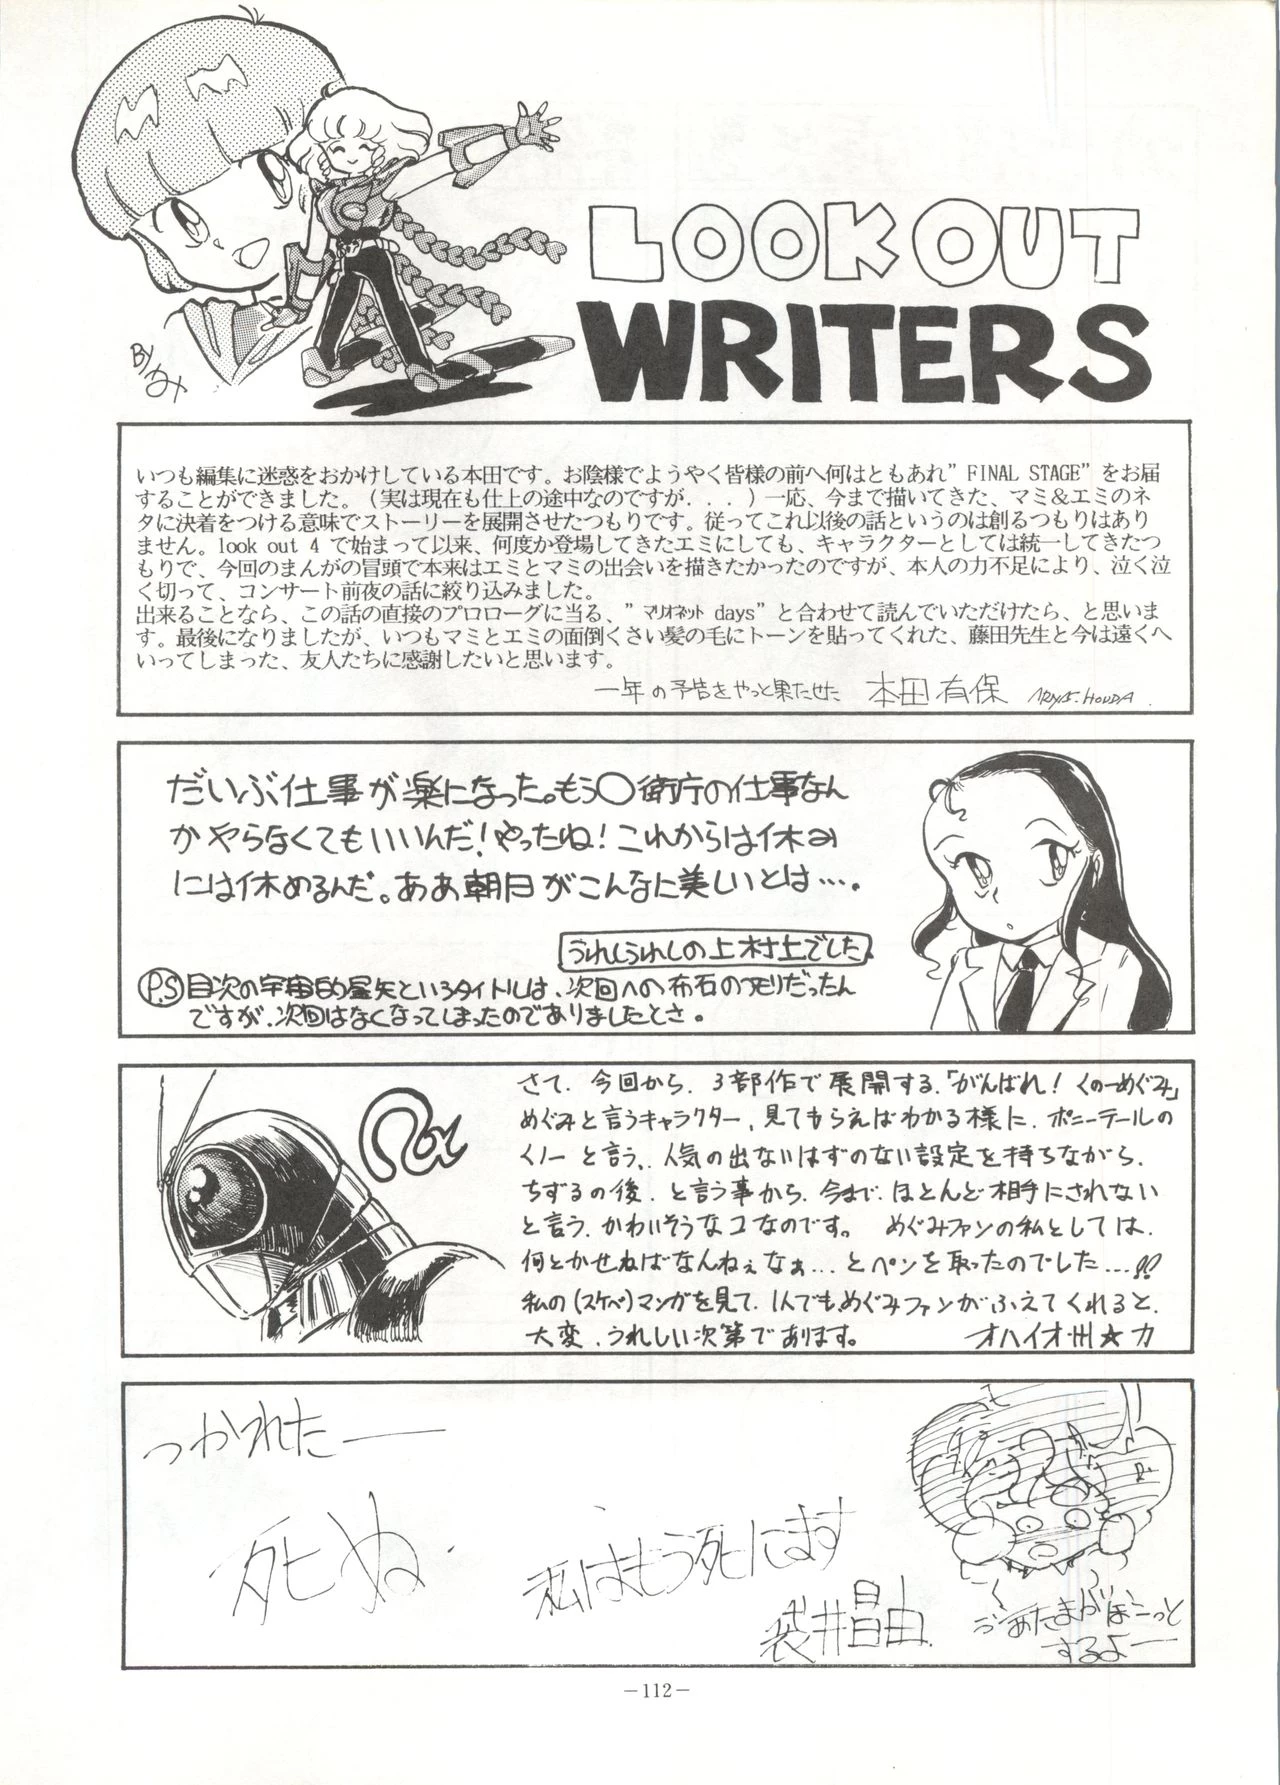 LOOK OUT
WRITERS
BY
いつも編集に迷惑をおかけしている本田です。お陰様でようやく皆様の前へ何はともあれ”FINAL STAGE”をお届
することができました。(実は現在も仕上の途中なのですが...)一応、今まで描いてきた、マミ&エミのネ
タに決着をつける意味でストーリーを展開させたつもりです。従ってこれ以後の話というのは創るつもりはあり
ません。look out 4 で始まって以来、何度か登場してきたエミにしても、キャラクターとしては統一してきたつ
もりで、今回のまんがの冒頭で本来はエミとマミの出会いを描きたかったのですが、本人の力不足により、泣く泣
く切って、コンサート前夜の話に絞り込みました。
出来ることなら、この話の直接のプロローグに当る、”マリオネット days”と合わせて読んでいただけたら、と思いま
す。最後になりましたが、いつもマミとエミの面倒くさい髪の毛にトーンを貼ってくれた、藤田先生と今は遠くへ
いってしまった、友人たちに感謝したいと思います。
一年の予告をやっと果たせた 本田有保
だいぶ仕事が楽になった。もう〇衛庁の仕事なん
かやらなくてもいいんだ!やったね!これからは休み
には休めるんだ。ああ朝日がこんなに美しいとは…。
うれしうれしの上村上でした
P.S 目次の宇宙的星矢というタイトルは、次回への布石のつもりだったん
ですが、次回はなくなってしまったのでありましたとさ。
さて、今回から、3部作で展開する、「がんばれ!くの一めぐみ」
めぐみと言うキャラクター、見てもらえばわかる様に、ポニーテールの
くノ一と言う、人気の出ないはずのない設定を持ちながら、
ちずるの後、と言う事から、今まで、ほとんど相手にされない
と言う、かわいそうなコなのです。 めぐみファンの私としては、
何とかせねばなんねぇなぁ...とペンを取ったのでした...!!
私の(スケベ)マンガを見て、1人でもめぐみファンがふえてくれると、
大変、うれしい次第であります。 オハイオ州☆力
つかれたー
死ぬ.
私はもう死にます
袋井昌由.
あたまがぼーっと
するよー
-112-